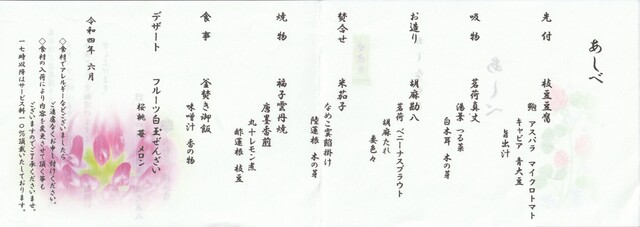 あしべ
先付 枝豆豆腐
鮑 アスパラ マイクロトマト
キャビア 青大豆
旨出汁
吸物 茗荷真丈
湯葉 つる菜
白木耳 木の芽
お造り 胡麻勘八
茗荷 ベニーナスプラウト
胡麻たれ
妻色々
賛合せ 米茄子
なめこ雲餡掛け
陸蓮根 木の芽
焼物 福子雲丹焼
唐墨香煎
丸十レモン煮
酢蓮根 枝豆
食事 釜焚き御飯
味噌汁 香の物
デザート フルーツ白玉ぜんざい
桜桃 苺 メロン
令和四年 六月
◇食材でアレルギーなどございましたら
ご遠慮なくお申し付けください。
◇食材の入荷により内容を変更させて頂く事も
ございますのでご了承くださいませ。
一七時以降はサービス料一〇%頂戴いたしております。